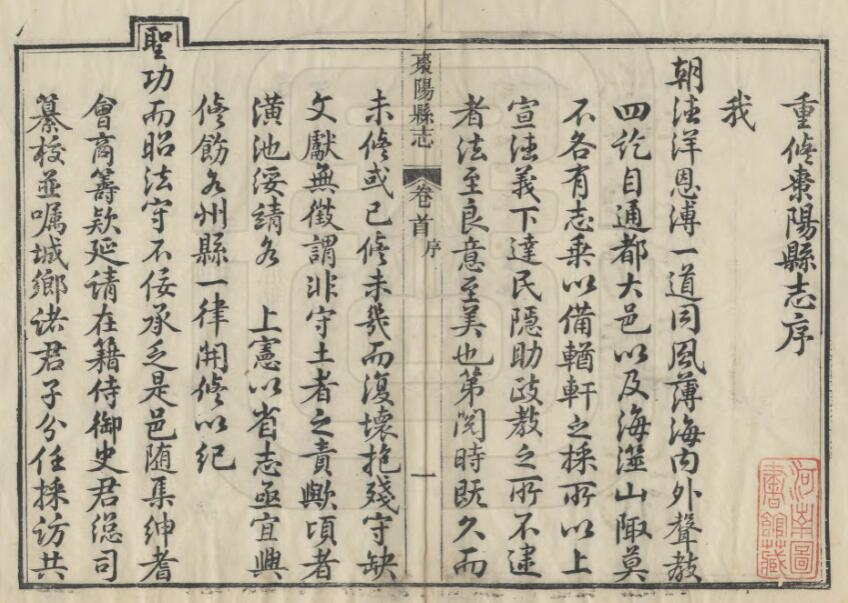 重修棗陽縣志序
我
朝德洋恩溥一道同風薄海內外聲教
四訖自通都大邑以及海澨山陬莫
不各有志乘以備輶軒之採所以上
宣德義下達民隱助政教之所不逮
者法至良意至美也第閱時既久而
棗陽縣志
卷首
序
一
未修或已修未幾而復壞抱殘守缺
文獻無徵謂非守土者之責歟頃者
潢池綏靖各 上憲以省志亟宜興
修飭各州縣一律開修以紀
聖功而昭法守不佞承乏是邑隨集紳耆
會商籌款延請在籍侍御史君總司
纂校並囑城鄉諸君子分任採訪共
河南圖
書館藏